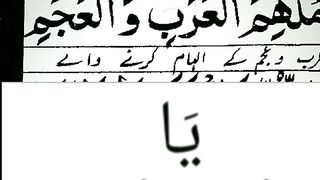 مُلْهِمَ الْعَرَبِ وَالْعَجَمِ
و عجم کے الہام کرنے والے
يَا